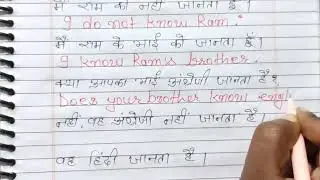 मैं राम को नहीं जानता हूँ।
I do not know Ram.
मैं राम के भाई को जानता हूँ।
I know Ram's brother.
क्या आपका भाई अंग्रेजी जानता है?
Does your brother know engl
नहीं, वह अंग्रेजी नहीं जानता है।
वह हिंदी जानता है।